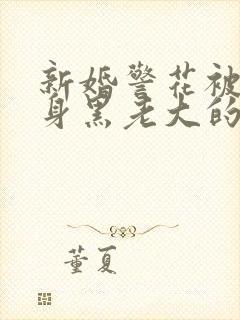 新婚警花被
身黑老大的
董夏